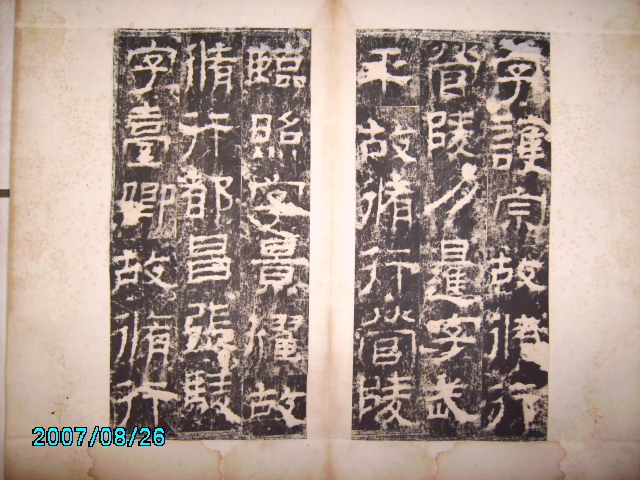 字護宗故脩行
營陵暹字武
平故脩行營陵
臨照字景燿故
脩行都昌張駼
字臺卿故脩行
2007/08/26